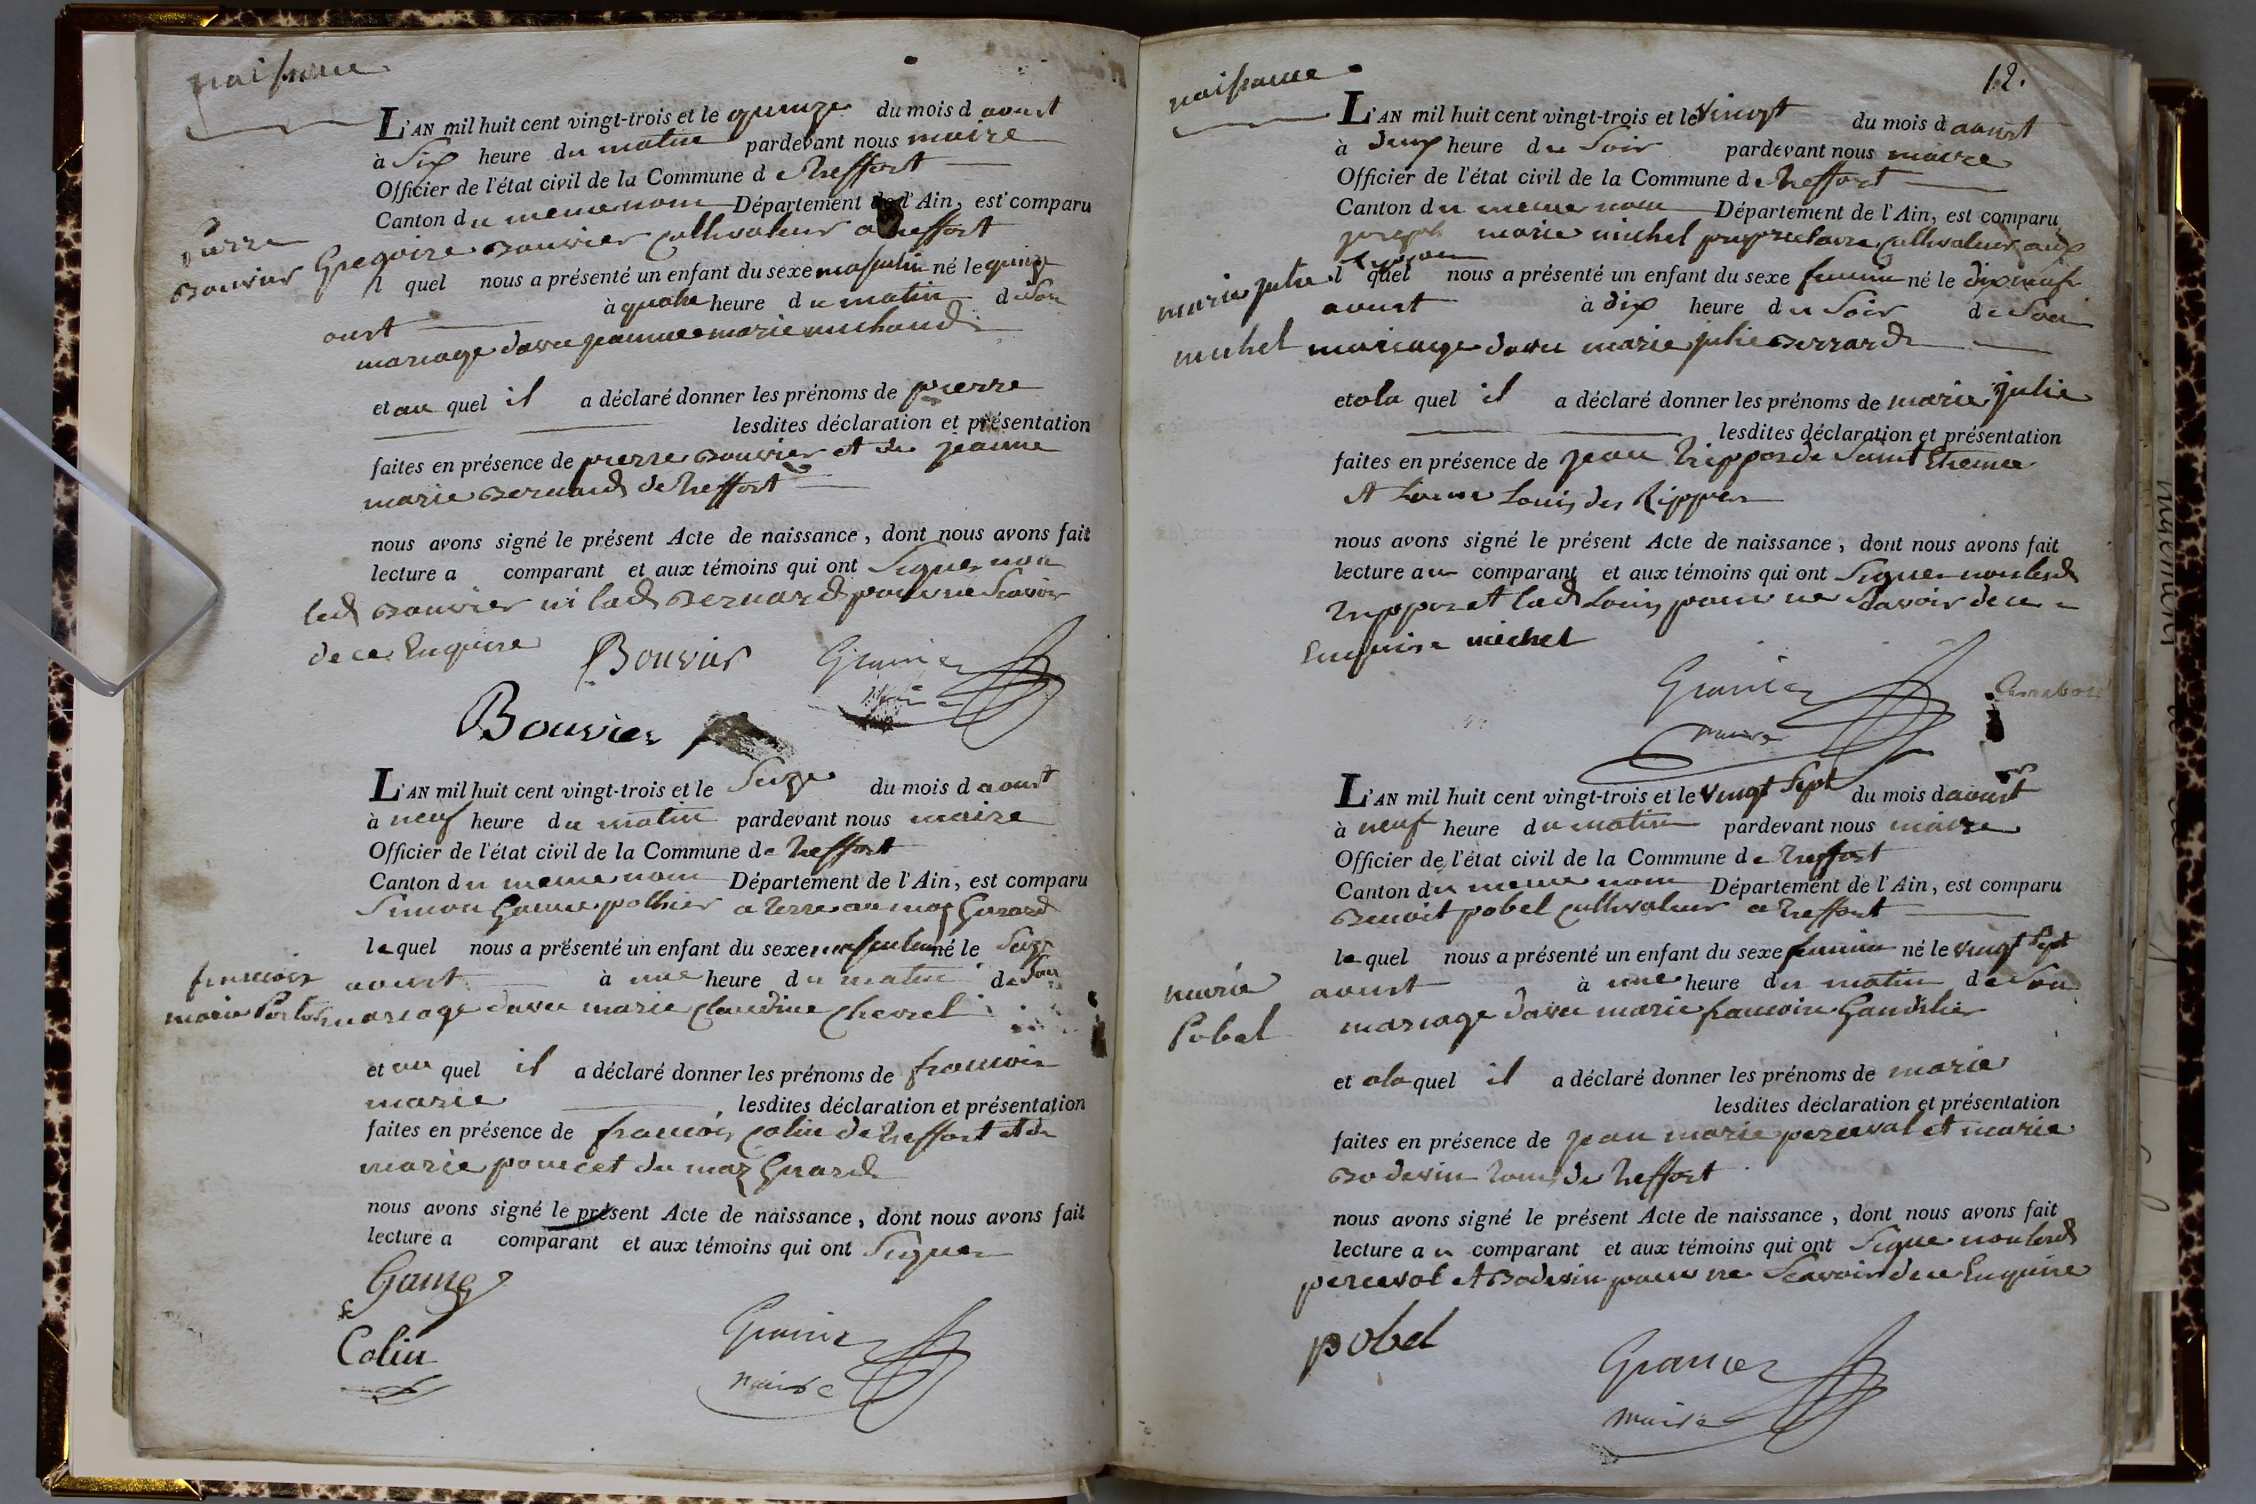 naissance
L'AN mil huit cent vingt-trois et le quinze du mois d aoust
à Six heure du matin pardevant nous maire
Officier de l'état civil de la Commune d e treffort
Canton du meme nom Département de l'Ain, est comparu
pierre
Bouvier
Gregoire Bouvier Cultivateur a treffort
l quel nous a présenté un enfant du sexe masculin né le quinze
oust à quatre heure du matin de Son
mariage davec jeanne marie michaud
et au quel il a déclaré donner les prénoms de pierre
lesdites déclaration et présentation
faites en présence de pierre Bouvier et de jeanne
marie Bernard de treffort
nous avons signé le présent Acte de naissance, dont nous avons fait
lecture a comparant et aux témoins qui ont Signer non
led Bouvier ni lad Bernard pour ne Scavoir
de ce Enquire
Bouvier Grainier
maire
Bouvier
L'AN mil huit cent vingt-trois et le Seize du mois d aoust
à neuf heure du matin pardevant nous maire
Officier de l'état civil de la Commune de treffort
Canton du meme nom Département de l'Ain, est comparu
Simon pothier a terre au maz Girard
le quel nous a présenté un enfant du sexe masculin né le Seize
francois
marie
aoust à une heure du matin de Son
mariage davec marie Claudine Chevrel
et au quel il a déclaré donner les prénoms de francois
marie lesdites déclaration et présentation
faites en présence de francois Colin de treffort et de
marie poncet du maz Girard
nous avons signé le présent Acte de naissance, dont nous avons fait
lecture a comparant et aux témoins qui ont Signer
Colin
Grainier
maire
12.
naissance
L'AN mil huit cent vingt-trois et le vingt du mois d aoust
à deux heure du Soir pardevant nous maire
Officier de l'état civil de la Commune de treffort
Canton du meme nom Département de l'Ain, est comparu
joseph marie michel proprietaire Cultivateur aux
marie julie
michel
l quel nous a présenté un enfant du sexe feminin né le dix neuf
aoust à dix heure du Soir de Son
mariage davec marie julie Berrard
et a la quel il a déclaré donner les prénoms de marie julie
lesdites déclaration et présentation
faites en présence de jean de Saint Etienne
et Louis des Rippes
nous avons signé le présent Acte de naissance, dont nous avons fait
lecture au comparant et aux témoins qui ont Signer non led
et lad Louis pour ne Scavoir de ce
Enquire michel
Grainier
maire
L'AN mil huit cent vingt-trois et le vingt Sept du mois d aoust
à neuf heure du matin pardevant nous maire
Officier de l'état civil de la Commune de treffort
Canton du meme nom Département de l'Ain, est comparu
Benoit pobel Cultivateur a treffort
le quel nous a présenté un enfant du sexe feminin né le vingt Sept
marie
Pobel
aoust à une heure du matin de Son
mariage davec marie francoise Gandilier
et a la quel il a déclaré donner les prénoms de marie
lesdites déclaration et présentation
faites en présence de jean marie perceval et marie
Bodevin tous de treffort
nous avons signé le présent Acte de naissance, dont nous avons fait
lecture au comparant et aux témoins qui ont Signe non lesd
perceval et Bodevin pour ne Scavoir de ce Enquire
pobel
Grainier
maire